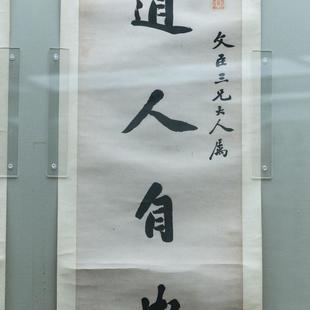 文臣三兄大人属
道人自